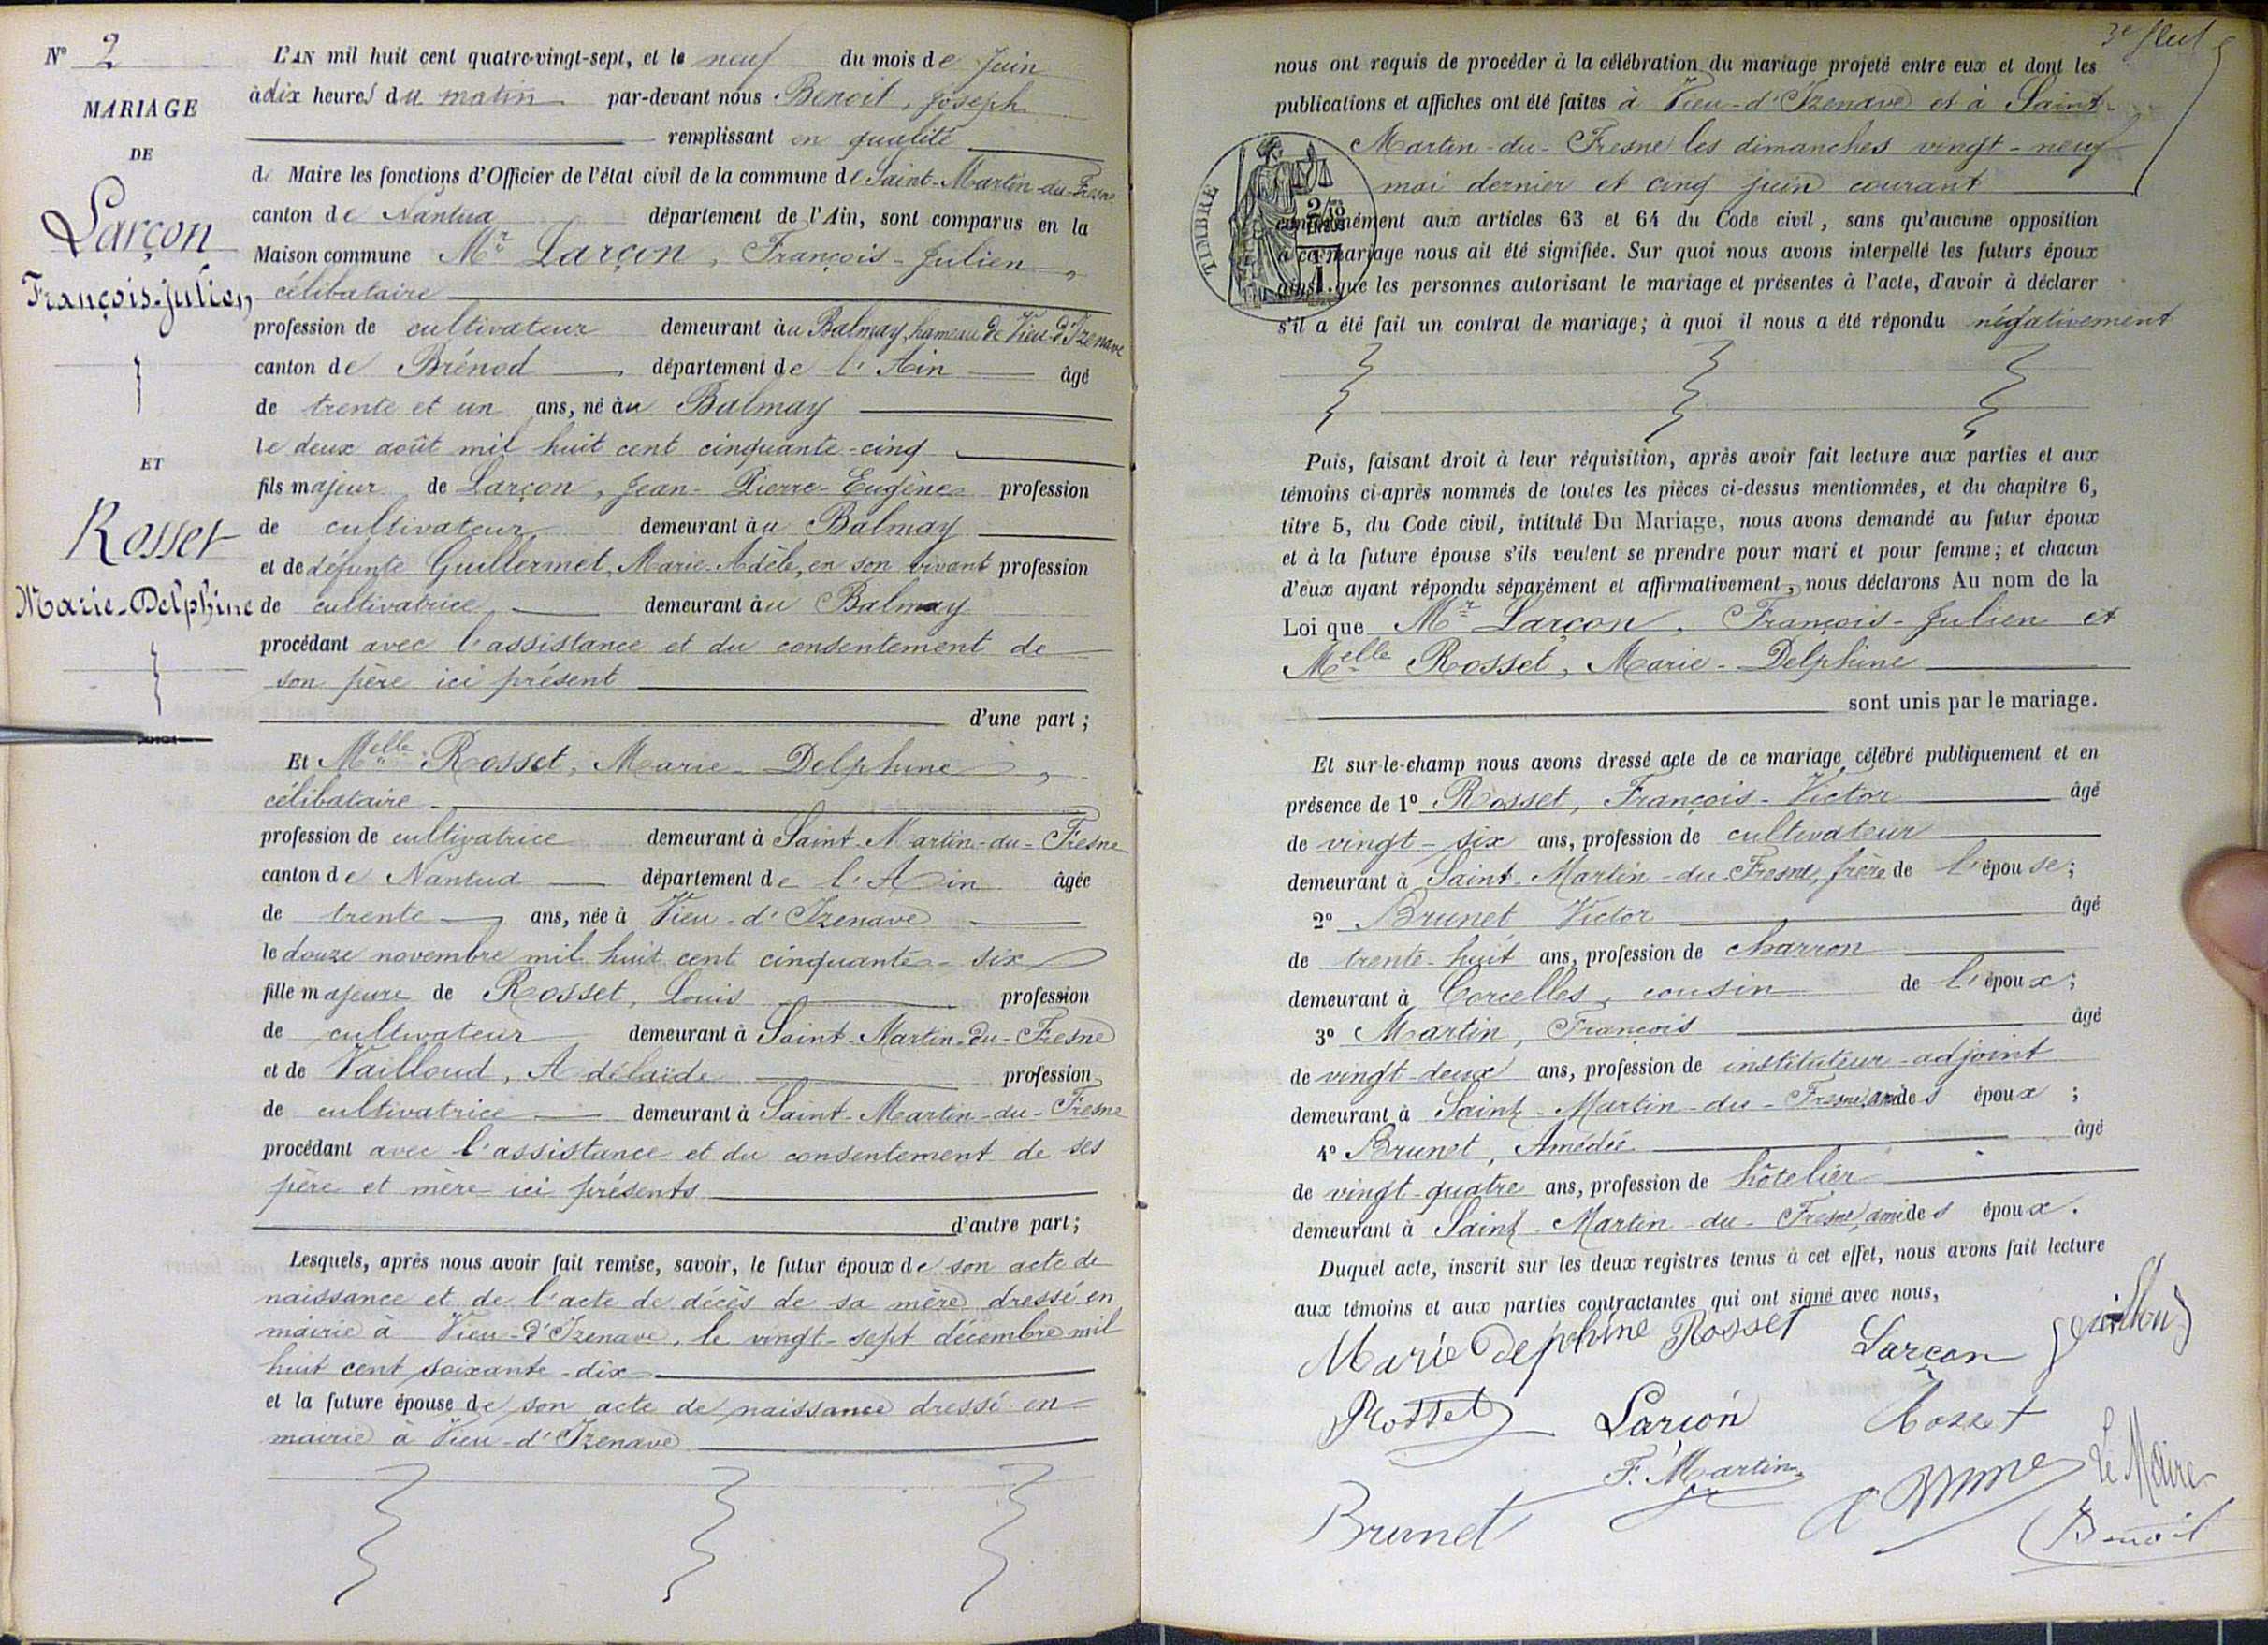 Nº 2
MARIAGE
DE
Larçon
François-Julien
ET
Rosset
Marie-Delphine
L'AN mil huit cent quatre-vingt-sept, et le neuf du mois de Juin
à dix heures du matin par-devant nous Benoit, Joseph
remplissant en qualité
de Maire les fonctions d'Officier de l'état civil de la commune de Saint-Martin-du-Fresne
canton de Nantua département de l'Ain, sont comparus en la
Maison commune Mr Larçon, François-Julien,
célibataire
profession de cultivateur demeurant au Balmay, hameau de Vieu-d'Izenave
canton de Brénod département de l'Ain âgé
de trente et un ans, né au Balmay
le deux août mil huit cent cinquante-cinq
fils majeur de Larçon, Jean-Pierre-Eugène profession
de cultivateur demeurant au Balmay
et de défunte Guillermet, Marie-Adèle, en son vivant profession
de cultivatrice demeurant au Balmay
procédant avec l'assistance et du consentement de
son père ici présent
d'une part;
Et Melle Rosset, Marie-Delphine,
célibataire
profession de cultivatrice demeurant à Saint-Martin-du-Fresne
canton de Nantua département de l'Ain âgée
de trente ans, née à Vieu-d'Izenave
le douze novembre mil huit cent cinquante-six
fille majeure de Rosset, Louis profession
de cultivateur demeurant à Saint-Martin-du-Fresne
et de Vailloud, Adélaïde profession
de cultivatrice demeurant à Saint-Martin-du-Fresne
procédant avec l'assistance et du consentement de ses
père et mère ici présents
d'autre part;
Lesquels, après nous avoir fait remise, savoir, le futur époux de son acte de
naissance et de l'acte de décès de sa mère dressé en
mairie à Vieu-d'Izenave, le vingt-sept décembre mil
huit cent soixante-dix
et la future épouse de son acte de naissance dressé en
mairie à Vieu-d'Izenave
3e feuil
nous ont requis de procéder à la célébration du mariage projeté entre eux et dont les
publications et affiches ont été faites à Vieu-d'Izenave et à Saint-
Martin-du-Fresne les dimanches vingt-neuf
mai dernier et cinq juin courant
TIMBRE
conformément aux articles 63 et 64 du Code civil, sans qu'aucune opposition
à ce mariage nous ait été signifiée. Sur quoi nous avons interpellé les futurs époux
ainsi que les personnes autorisant le mariage et présentes à l'acte, d'avoir à déclarer
s'il a été fait un contrat de mariage; à quoi il nous a été répondu négativement
Puis, faisant droit à leur réquisition, après avoir fait lecture aux parties et aux
témoins ci-après nommés de toutes les pièces ci-dessus mentionnées, et du chapitre 6,
titre 5, du Code civil, intitulé Du Mariage, nous avons demandé au futur époux
et à la future épouse s'ils veulent se prendre pour mari et pour femme; et chacun
d'eux ayant répondu séparément et affirmativement, nous déclarons Au nom de la
Loi que Mr Larçon, François-Julien et
Melle Rosset, Marie-Delphine
sont unis par le mariage.
Et sur-le-champ nous avons dressé acte de ce mariage célébré publiquement et en
présence de 1º Rosset, François-Victor âgé
de vingt-six ans, profession de cultivateur
demeurant à Saint-Martin-du-Fresne, frère de l'épouse;
2º Brunet Victor âgé
de trente-huit ans, profession de charron
demeurant à Corcelles, cousin de l'époux;
3º Martin, François âgé
de vingt-deux ans, profession de instituteur-adjoint
demeurant à Saint-Martin-du-Fresne, ami des époux;
4º Brunet, Amédée âgé
de vingt-quatre ans, profession de hôtelier
demeurant à Saint-Martin-du-Fresne, ami des époux.
Duquel acte, inscrit sur les deux registres tenus à cet effet, nous avons fait lecture
aux témoins et aux parties contractantes qui ont signé avec nous,
Marie Delphine Rosset Larçon
Rosset Larçon Rosset
F. Martin Le Maire
Brunet Benoit